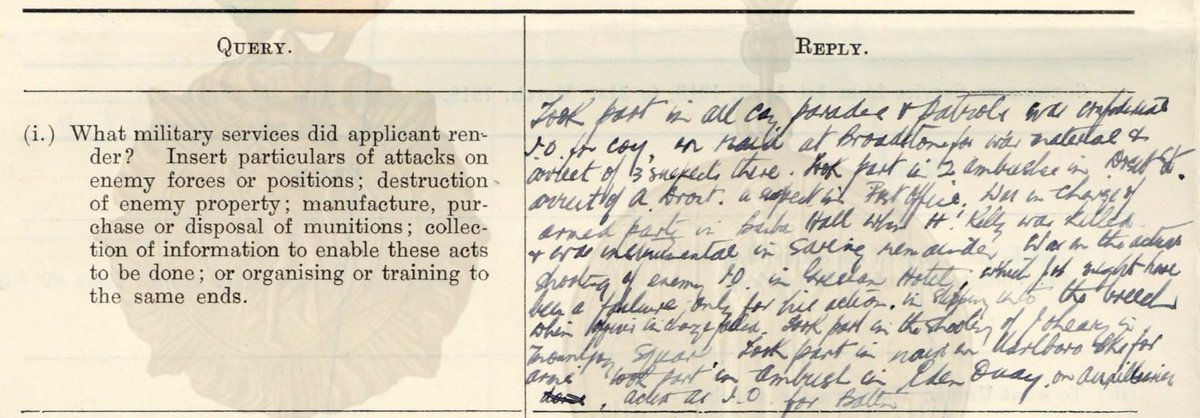 QUERY.
REPLY.
(i.) What military services did applicant ren-
der? Insert particulars of attacks on
enemy forces or positions; destruction
of enemy property; manufacture, pur-
chase or disposal of munitions; collec-
tion of information to enable these acts
to be done; or organising or training to
the same ends.
Took part in all coy parades & patrols was
I.O. for coy, on raid at Broadstone for war material &
arrest of 3 suspects there. Took part in 2 ambushes in Dorset St.
arrest of a. a suspect in Post Office. Was in charge of
armed party in Hall when H. Kelly was killed
& was instrumental in saving remainder. Was in the actual
shooting of enemy I.O. in Gresham Hotel, which job might have
been a failure only for his action in stepping into the breech
when in charge failed. Took part in the shooting of J. in
Mountjoy Square. Took part in raid on Marlboro for
arms. Took part in ambush in Eden Quay, on Auxilliaries
acted as I.O. for Battn